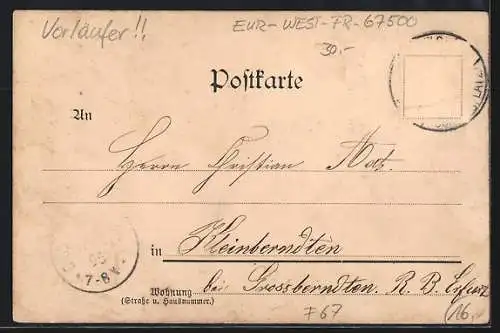 Vorläufer!!
EUR-WEST-FR-67500
30,-
Postkarte
An
Herrn Christian
in Kleinberndten
Wohnung
(Straße u. Hausnummer.)
bei Grossberndten. R. B. Erfurt
7-8V
F67
16,-